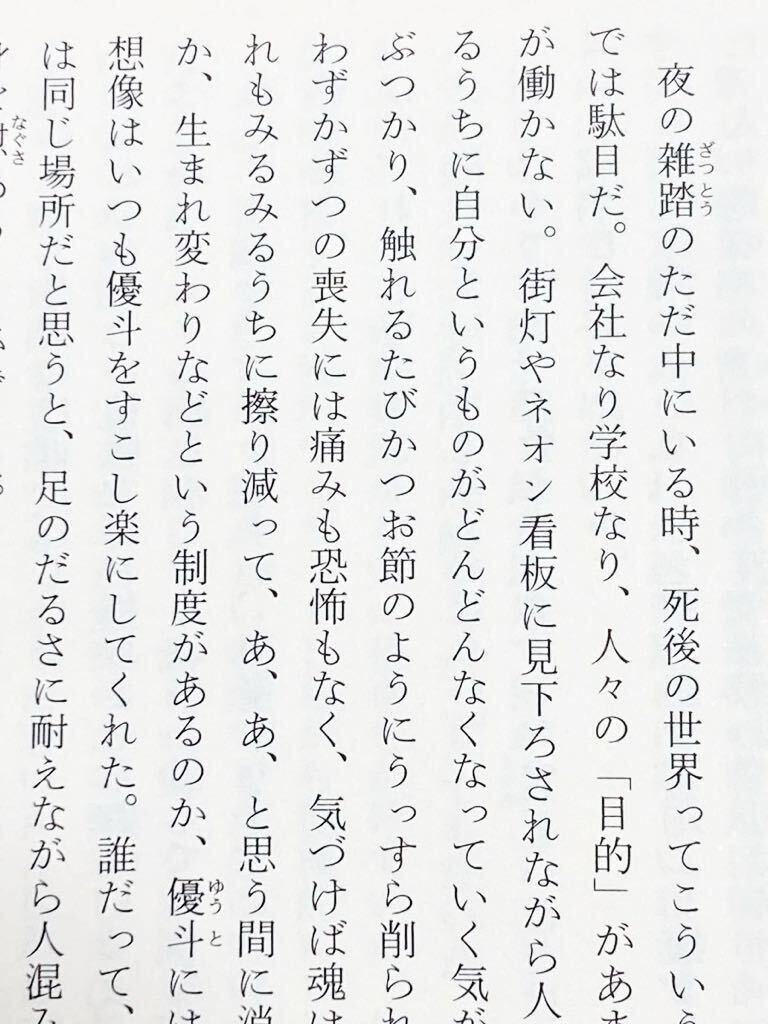 夜の雑踏のただ中にいる時、死後の世界ってこういう
では駄目だ。会社なり学校なり、人々の「目的」があま
が働かない。街灯やネオン看板に見下ろされながら人
るうちに自分というものがどんどんなくなっていく気が
ぶつかり、触れるたびかつお節のようにうっすら削られ
わずかずつの喪失には痛みも恐怖もなく、気づけば魂は
れもみるみるうちに擦り減って、あ、あ、と思う間に消
か、生まれ変わりなどという制度があるのか、優斗には
想像はいつも優斗をすこし楽にしてくれた。誰だって、
は同じ場所だと思うと、足のだるさに耐えながら人混み